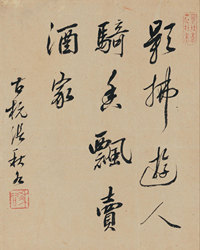 影拂遊人
騎香飄賣
酒家
古杭張秋谷